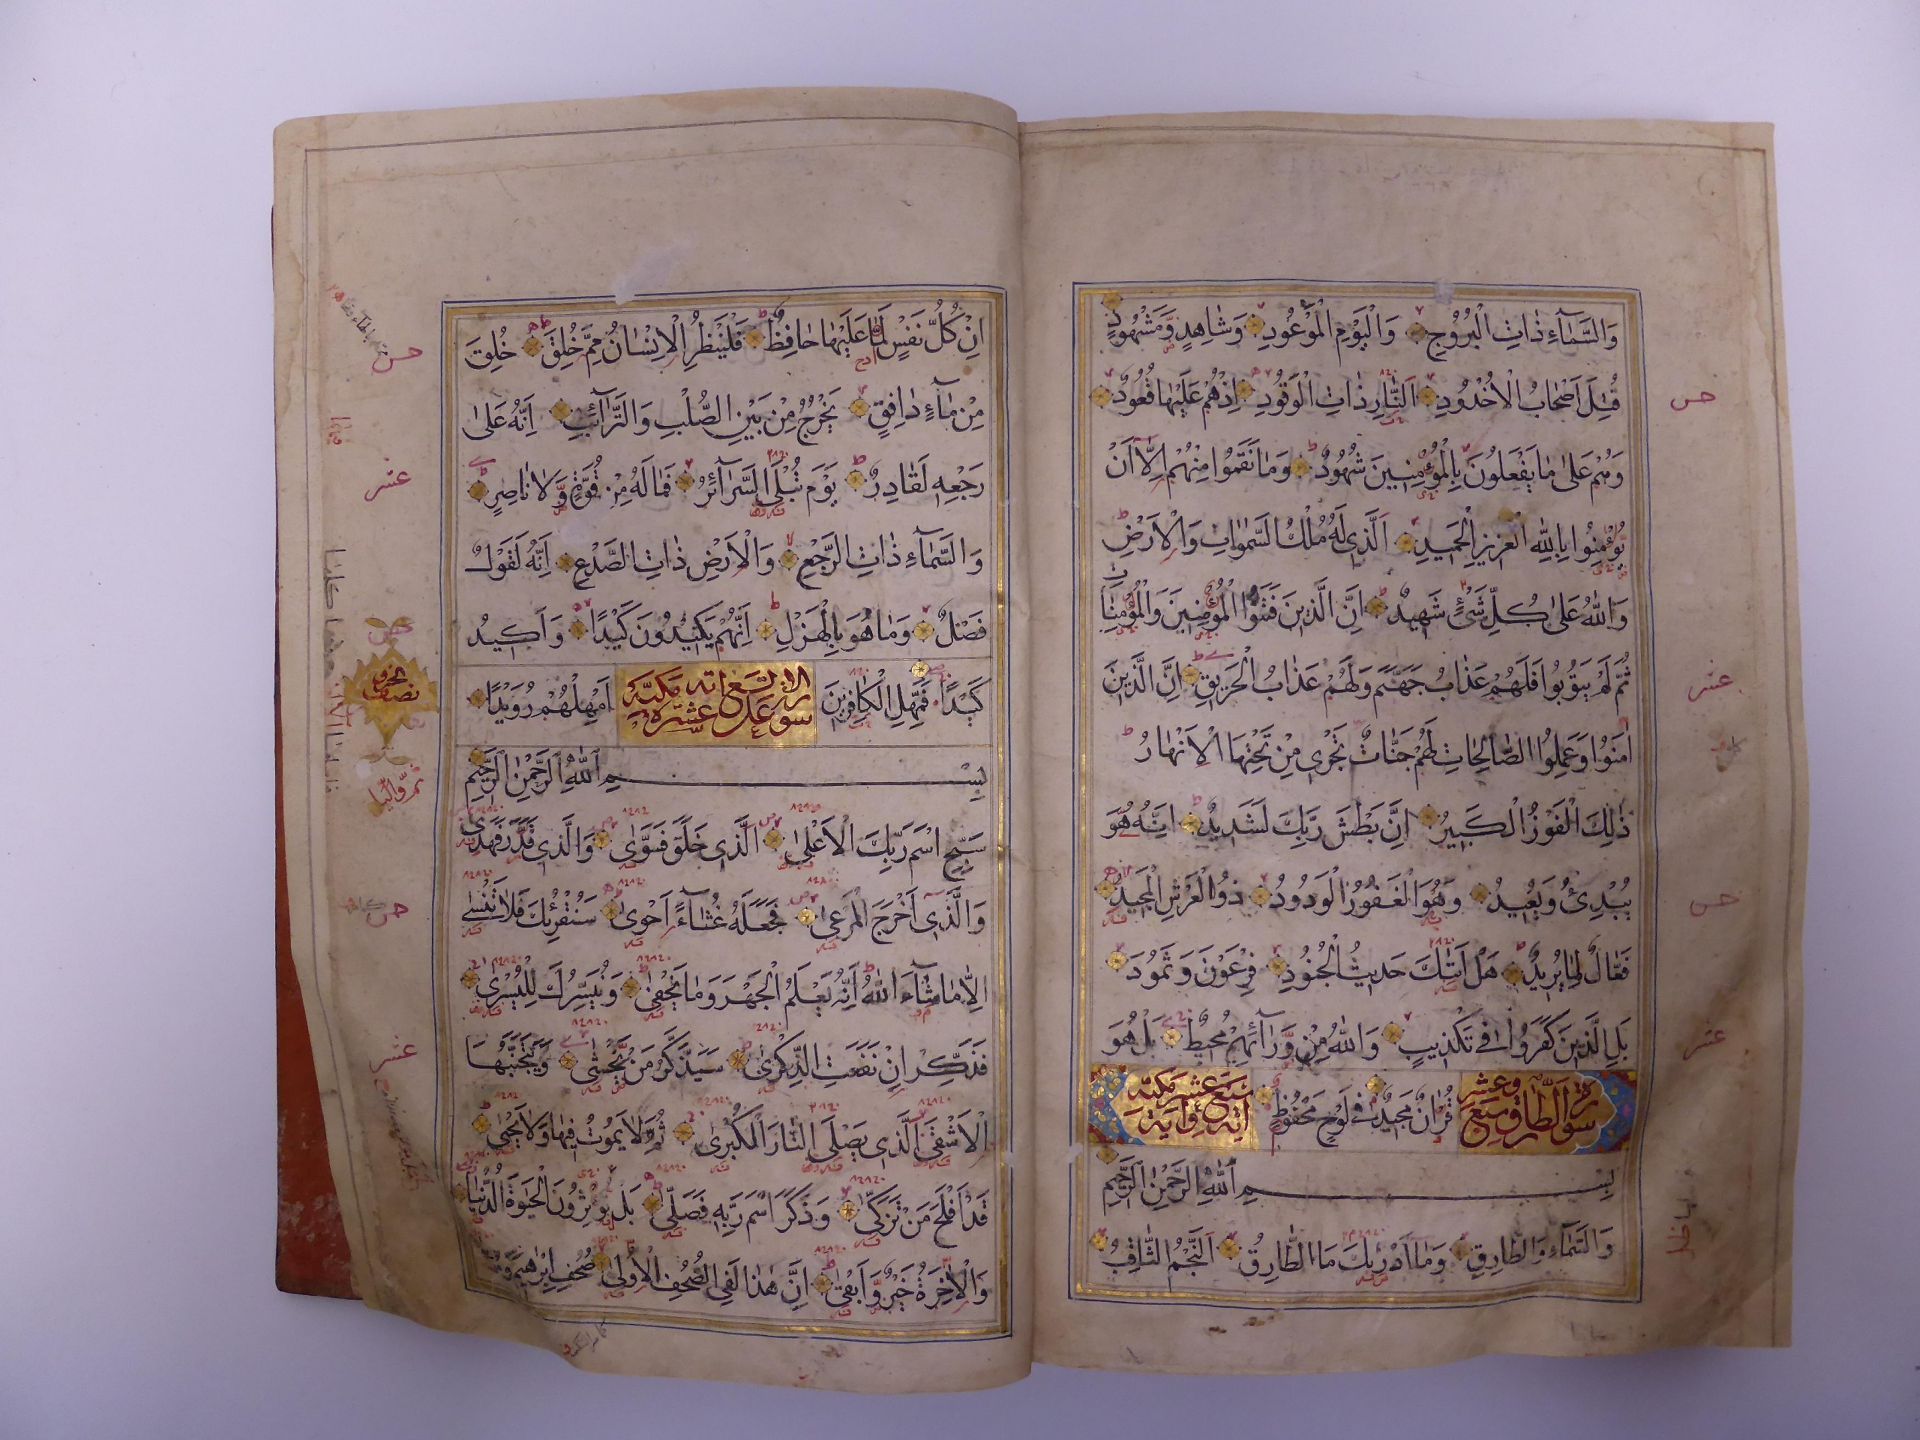 وَالسَّمَآءِ ذَاتِ الْبُرُوجِ وَالْيَوْمِ الْمَوْعُودِ وَشَاهِدٍ وَّمَشْهُودٍ
قُتِلَ اَصْحَابُ الْاُخْدُودِ اَلنَّارِ ذَاتِ الْوَقُودِ اِذْهُمْ عَلَيْهَا قُعُودٌ
وَهُمْ عَلىٰ مَا يَفْعَلُونَ بِالْمُؤْمِنِينَ شُهُودٌ وَمَا نَقَمُوا مِنْهُمْ اِلَّا اَنْ
يُؤْمِنُوا بِاللّٰهِ الْعَزِيزِ الْحَمِيدِ اَلَّذِى لَهُ مُلْكُ السَّمٰوَاتِ وَالْاَرْضِ
وَاللّٰهُ عَلىٰ كُلِّ شَىْءٍ شَهِيدٌ اِنَّ الَّذِينَ فَتَنُوا الْمُؤْمِنِينَ وَالْمُؤْمِنَاتِ
ثُمَّ لَمْ يَتُوبُوا فَلَهُمْ عَذَابُ جَهَنَّمَ وَلَهُمْ عَذَابُ الْحَرِيقِ اِنَّ الَّذِينَ
اٰمَنُوا وَعَمِلُوا الصَّالِحَاتِ لَهُمْ جَنَّاتٌ تَجْرِى مِنْ تَحْتِهَا الْاَنْهَارُ
ذٰلِكَ الْفَوْزُ الْكَبِيرُ اِنَّ بَطْشَ رَبِّكَ لَشَدِيدٌ اِنَّهُ هُوَ
يُبْدِئُ وَيُعِيدُ وَهُوَ الْغَفُورُ الْوَدُودُ ذُو الْعَرْشِ الْمَجِيدُ
فَعَّالٌ لِمَا يُرِيدُ هَلْ اَتٰىكَ حَدِيثُ الْجُنُودِ فِرْعَوْنَ وَثَمُودَ
بَلِ الَّذِينَ كَفَرُوا فِى تَكْذِيبٍ وَاللّٰهُ مِنْ وَّرَآئِهِمْ مُحِيطٌ بَلْ هُوَ
سورة الطارق سبع وعشر قُرْاٰنٌ مَجِيدٌ فِى لَوْحٍ مَحْفُوظٍ سبع عشر مكية
بِسْمِ اللّٰهِ الرَّحْمٰنِ الرَّحِيمِ
وَالسَّمَآءِ وَالطَّارِقِ وَمَآ اَدْرٰىكَ مَا الطَّارِقُ اَلنَّجْمُ الثَّاقِبُ
خمس
عشر
خمس
عشر
اِنْ كُلُّ نَفْسٍ لَمَّا عَلَيْهَا حَافِظٌ فَلْيَنْظُرِ الْاِنْسَانُ مِمَّ خُلِقَ خُلِقَ
مِنْ مَآءٍ دَافِقٍ يَخْرُجُ مِنْ بَيْنِ الصُّلْبِ وَالتَّرَآئِبِ اِنَّهُ عَلىٰ
رَجْعِهِ لَقَادِرٌ يَوْمَ تُبْلَى السَّرَآئِرُ فَمَا لَهُ مِنْ قُوَّةٍ وَّلَا نَاصِرٍ
وَالسَّمَآءِ ذَاتِ الرَّجْعِ وَالْاَرْضِ ذَاتِ الصَّدْعِ اِنَّهُ لَقَوْلٌ
فَصْلٌ وَمَا هُوَ بِالْهَزْلِ اِنَّهُمْ يَكِيدُونَ كَيْدًا وَاَكِيدُ
كَيْدًا فَمَهِّلِ الْكَافِرِينَ سورة الاعلى تسع عشرة اية مكية اَمْهِلْهُمْ رُوَيْدًا
بِسْمِ اللّٰهِ الرَّحْمٰنِ الرَّحِيمِ
سَبِّحِ اسْمَ رَبِّكَ الْاَعْلىٰ الَّذِى خَلَقَ فَسَوّٰى وَالَّذِى قَدَّرَ فَهَدٰى
وَالَّذِى اَخْرَجَ الْمَرْعٰى فَجَعَلَهُ غُثَآءً اَحْوٰى سَنُقْرِئُكَ فَلَا تَنْسٰى
اِلَّا مَا شَآءَ اللّٰهُ اِنَّهُ يَعْلَمُ الْجَهْرَ وَمَا يَخْفٰى وَنُيَسِّرُكَ لِلْيُسْرٰى
فَذَكِّرْ اِنْ نَفَعَتِ الذِّكْرٰى سَيَذَّكَّرُ مَنْ يَّخْشٰى وَيَتَجَنَّبُهَا
الْاَشْقَى الَّذِى يَصْلَى النَّارَ الْكُبْرٰى ثُمَّ لَا يَمُوتُ فِيهَا وَلَا يَحْيٰى
قَدْ اَفْلَحَ مَنْ تَزَكّٰى وَذَكَرَ اسْمَ رَبِّهِ فَصَلّٰى بَلْ تُؤْثِرُونَ الْحَيٰوةَ الدُّنْيَا
وَالْاٰخِرَةُ خَيْرٌ وَّاَبْقٰى اِنَّ هٰذَا لَفِى الصُّحُفِ الْاُولٰى صُحُفِ اِبْرٰهِيمَ وَمُوسٰى
خمس
عشر
خمس
نصف حزب
خمس
عشر